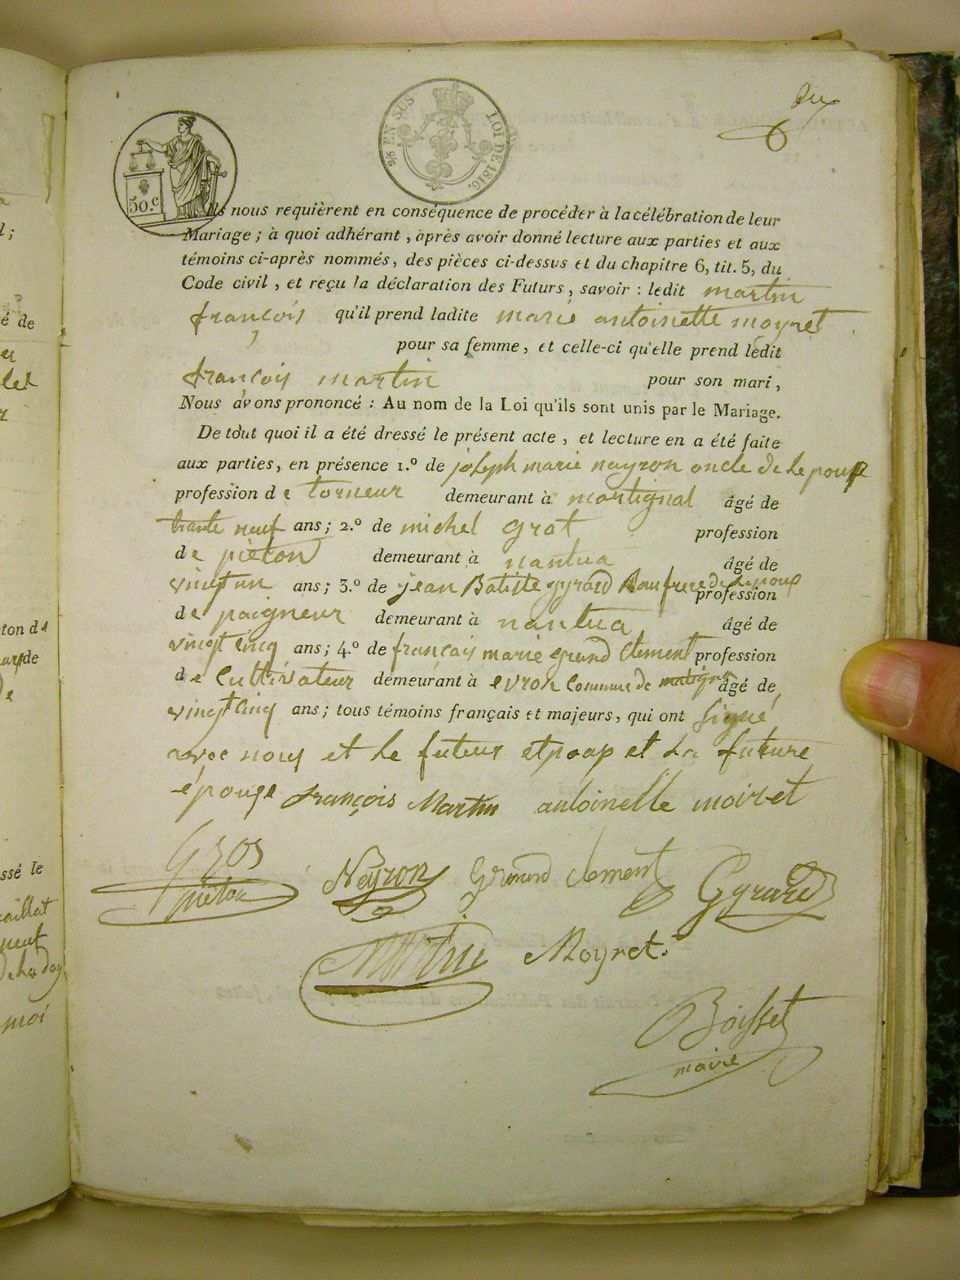 50.c
¼ EN SUS LOI DE 1816.
6
Ils nous requièrent en conséquence de procéder à la célébration de leur
Mariage ; à quoi adhérant, après avoir donné lecture aux parties et aux
témoins ci-après nommés, des pièces ci-dessus et du chapitre 6, tit. 5, du
Code civil, et reçu la déclaration des Futurs, savoir : ledit martin
françois qu'il prend ladite marie antoinette moyret
pour sa femme, et celle-ci qu'elle prend ledit
françois martin pour son mari,
Nous avons prononcé : Au nom de la Loi qu'ils sont unis par le Mariage.
De tout quoi il a été dressé le présent acte, et lecture en a été faite
aux parties, en présence 1.º de joseph marie nayron oncle de lepoux
profession de torneur demeurant à martignat âgé de
trante neuf ans ; 2.º de michel grot profession
de pieton demeurant à nantua âgé de
vingt un ans ; 3.º de jean Batiste gyrard Baufrere de lepoux profession
de paigneur demeurant à nantua âgé de
vingt cinq ans ; 4.º de françois marie grand clement profession
de Cultivateur demeurant à evron Commune de âgé de
vingt cinq ans ; tous témoins français et majeurs, qui ont signé
avec nous et le futeur et la future
épouse françois Martin antoinette moiret
gros Neyron clement Gyrard
pieton
Martin Moyret.
Boisset
maire